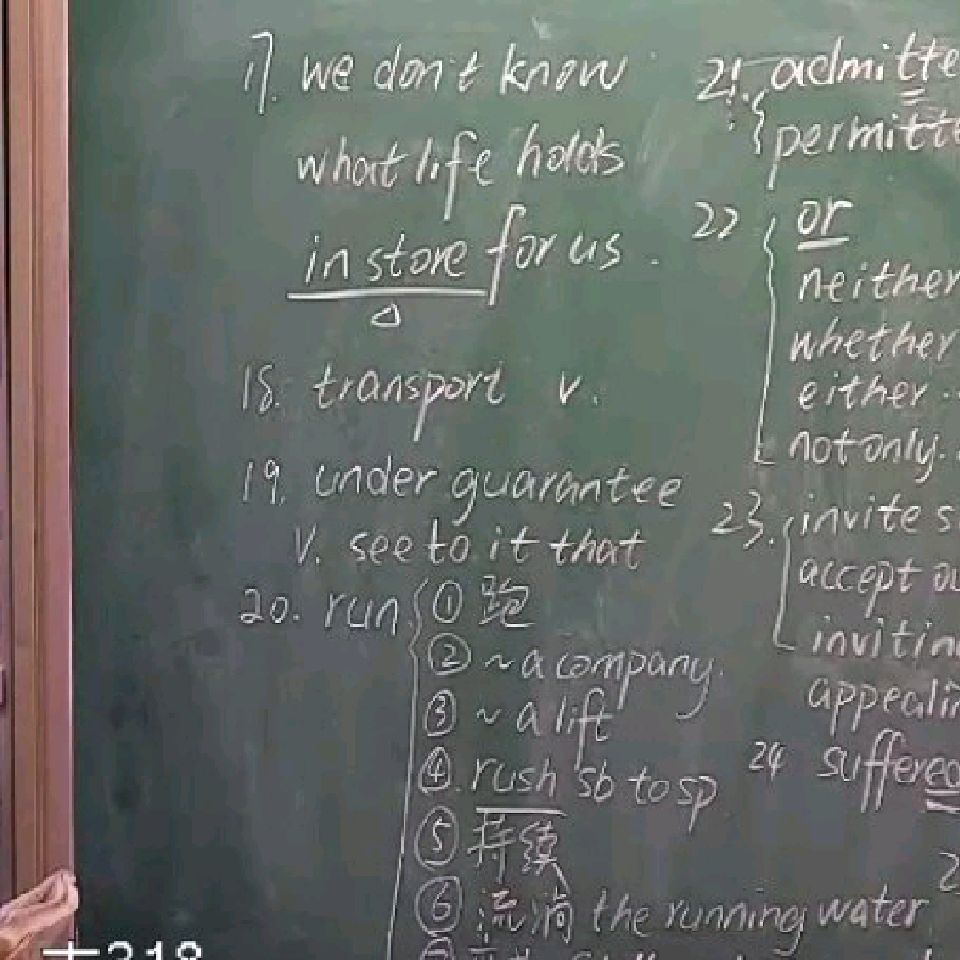 17. we don't know
what life holds
in store for us.
18. transport v.
19. under guarantee
v. see to it that
20. run ① 跑
② ~ a company.
③ ~ a lift
④ rush sb to sp
⑤ 持续
⑥ 流淌 the running water
21. admitte
permitte
22 or
neither
whether
either ..
not only.
23. invite s
accept ou
invitin
appealin
24 suffered
2